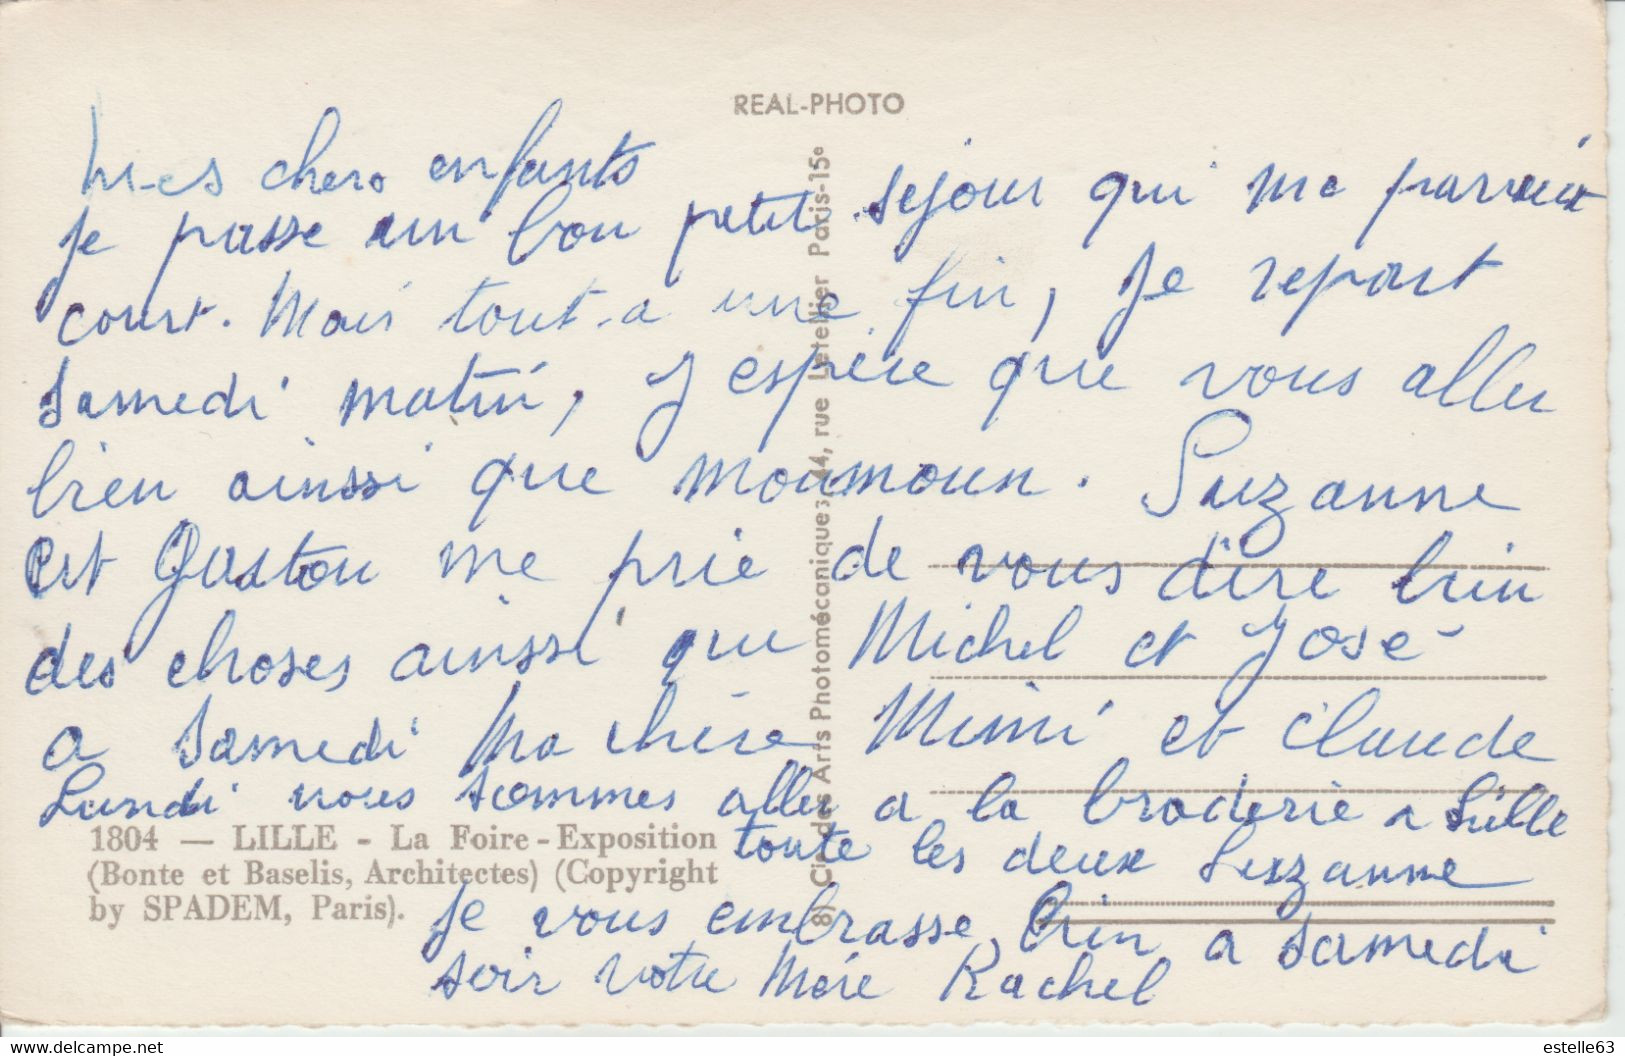 REAL-PHOTO
Mes chers enfants
je passe un bon petit sejour qui me parait
court. Mais tout a une fin, je repart
Samedi matin, J espère que vous aller
bien ainsi que moumoun. Suzanne
est Gaston me prie de vous dire bien
des choses ainsi que Michel et José
a Samedi Ma chère Mimi et claude
Lundi nous sommes aller a la broderie a Lille
toute les deux Suzanne
Je vous embrasse bien a Samedi
soir votre Mère Rachel
1804 — LILLE - La Foire-Exposition
(Bonte et Baselis, Architectes) (Copyright
by SPADEM, Paris).
Cie des Arts Photomécaniques, 44, rue Letellier Paris-15e
estelle63
www.delcampe.net